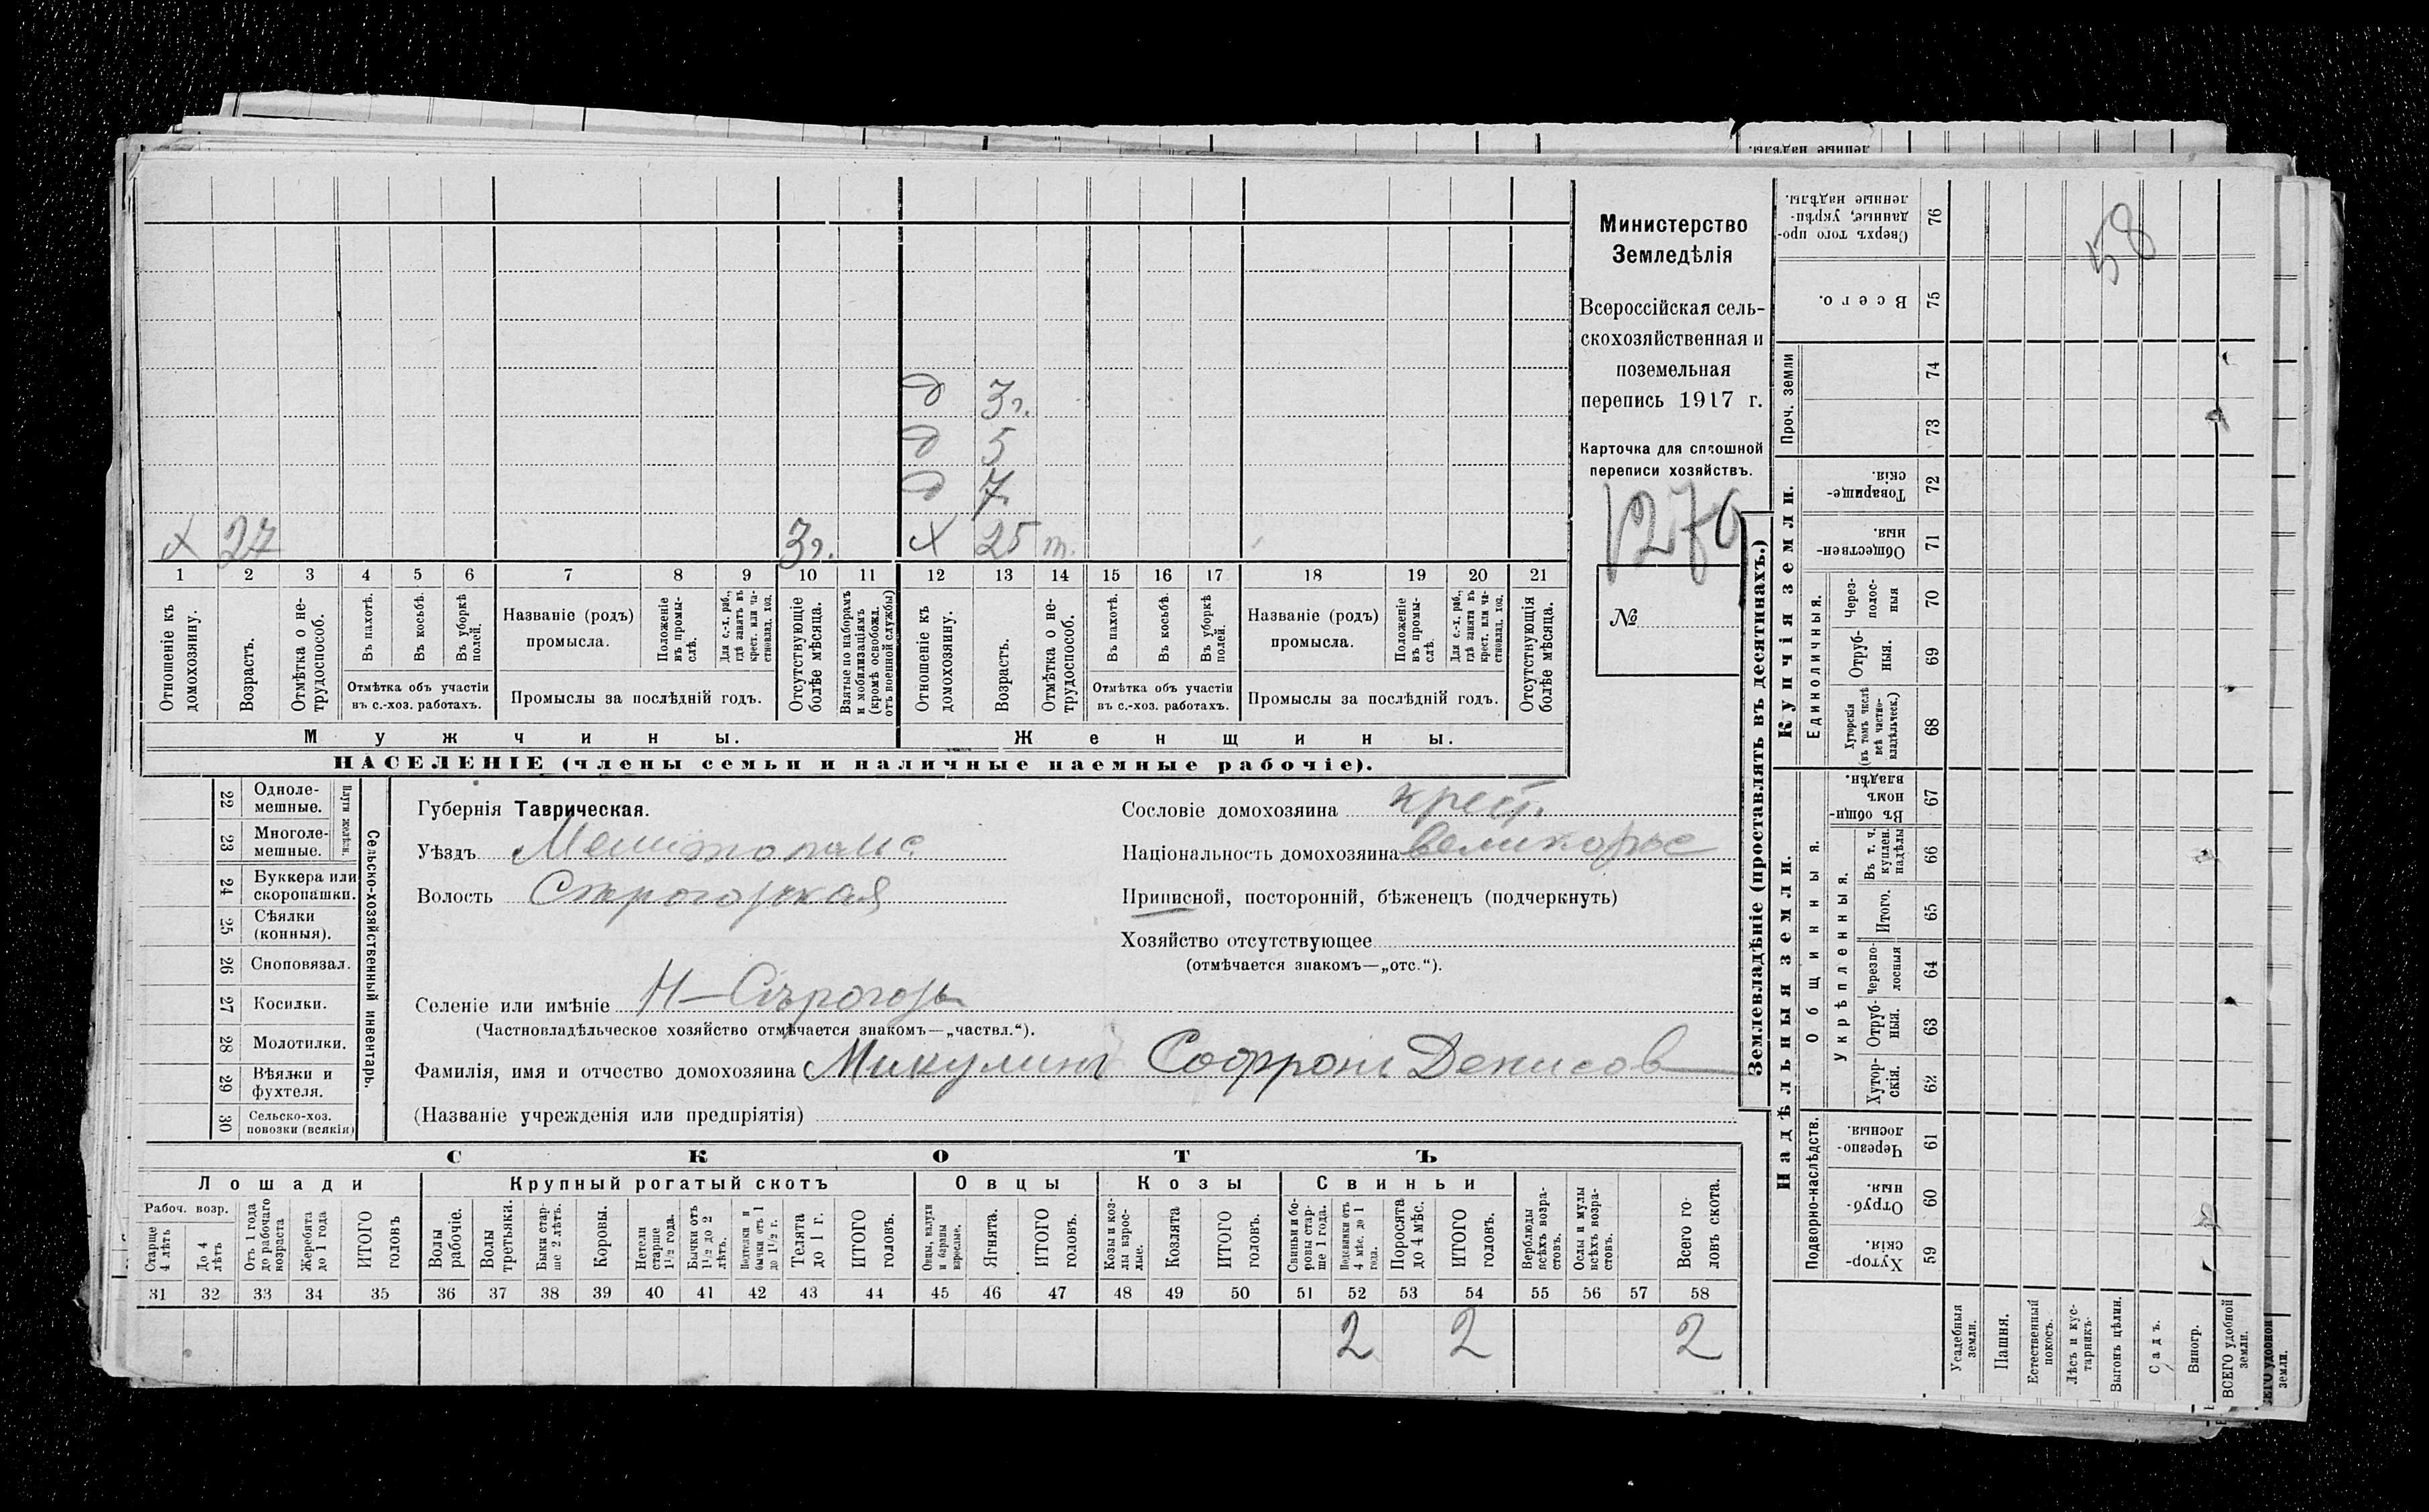 х 27 3г. х 25 т.
д 7
д 5
д 3г.
1 2 3 4 5 6 7 8 9 10 11 12 13 14 15 16 17 18 19 20 21
Отношеніе къ домохозяину.
Возрастъ.
Отмѣтка о не-трудоспособ.
Въ пахотѣ.
Въ косьбѣ.
Въ уборкѣ полей.
Отмѣтка объ участіи
въ с.-хоз. работахъ.
Названіе (родъ)
промысла.
Положеніе въ промы-слѣ.
Для с.-х. раб., гдѣ занятъ въ крест. или ча-стновлад. хоз.
Промыслы за послѣдній годъ.
Отсутствующіе болѣе мѣсяца.
Взятые по наборамъ и мобилизаціямъ (кромѣ освобожд. отъ военной службы)
Отношеніе къ домохозяину.
Возрастъ.
Отмѣтка о не-трудоспособ.
Въ пахотѣ.
Въ косьбѣ.
Въ уборкѣ полей.
Отмѣтка объ участіи
въ с.-хоз. работахъ.
Названіе (родъ)
промысла.
Положеніе въ промы-слѣ.
Для с.-х. раб., гдѣ занята въ крест. или ча-стновлад. хоз.
Промыслы за послѣдній годъ.
Отсутствующія болѣе мѣсяца.
Мужчины. Женщины.
НАСЕЛЕНІЕ (члены семьи и наличные наемные рабочіе).
Министерство
Земледѣлія
Всероссійская сель-
скохозяйственная и
поземельная
перепись 1917 г.
Карточка для сплошной
переписи хозяйствъ.
№
22 Одноле-мешные.
23 Многоле-мешные.
Плуги желѣзн.
24 Буккера или скоропашки.
25 Сѣялки (конныя).
26 Сноповязал.
27 Косилки.
28 Молотилки.
29 Вѣялки и фухтеля.
30 Сельско-хоз. повозки (всякія)
Сельско-хозяйственный инвентарь.
Губернія Таврическая.
Уѣздъ Мелитопольс.
Волость
Селеніе или имѣніе Н-Сѣрогозы
(Частновладѣльческое хозяйство отмѣчается знакомъ—„частвл.“).
Фамилія, имя и отчество домохозяина Микулинъ Софронъ Денисов
(Названіе учрежденія или предпріятія)
Сословіе домохозяина крест.
Національность домохозяина великорос
Приписной, посторонній, бѣженецъ (подчеркнуть)
Хозяйство отсутствующее
(отмѣчается знакомъ—„отс.“).
СКОТЪ
Лошади Крупный рогатый скотъ Овцы Козы Свиньи
Рабоч. возр.
Старше 4 лѣтъ
До 4 лѣтъ
Отъ 1 года до рабочаго возраста
Жеребята до 1 года
ИТОГО головъ
Волы рабочіе.
Волы третьяки.
Быки стар-ше 2 лѣтъ.
Коровы.
Нетели старше 1½ года.
Бычки отъ 1½ до 2 лѣтъ.
Телята до 1 г.
ИТОГО головъ.
Овцы, валухи и бараны взрослые.
Ягнята.
ИТОГО головъ.
Козы и коз-лы взрос-лые.
Козлята
ИТОГО головъ.
Свиньи и бо-ровы стар-ше 1 года.
Подсвинки отъ 4 мѣс. до 1 года.
Поросята до 4 мѣс.
ИТОГО головъ.
Верблюды всѣхъ возра-стовъ.
Ослы и мулы всѣхъ возра-стовъ.
Всего го-ловъ скота.
31 32 33 34 35 36 37 38 39 40 41 42 43 44 45 46 47 48 49 50 51 52 53 54 55 56 57 58
2 2 2
Землевладѣніе (проставлять въ десятинахъ.)
Надѣльныя земли. Купчія земли.
Подворно-наслѣдств. Общинныя. Укрѣпленныя. Единоличныя. Проч. земли
59 Хутор-скія.
60 Отруб-ныя.
61 Черезпо-лосныя.
62 Хутор-скія.
63 Отруб-ныя.
64 Черезпо-лосныя
65 Итого.
66 Въ т. ч. куплен. надѣлы
67 Въ общин-номъ владѣн.
68 Хуторскія (въ томъ числѣ всѣ частно-владѣльческ.)
69 Отруб-ныя.
70 Через-полос-ныя
71 Обществен-ныя.
72 Товарище-скія.
73
74
75 Всего.
76 Сверхъ того про-данные, укрѣп-ленные надѣлы.
58
Усадебныя земли.
Пашня.
Естественный покосъ.
Лѣсъ и кус-тарникъ.
Выгонъ цѣлин.
Садъ.
Виногр.
ВСЕГО удобной земли.